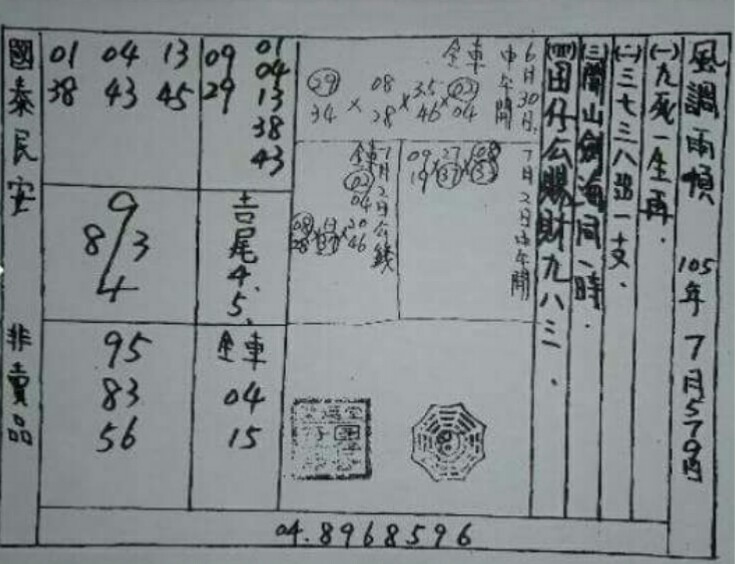 風調雨順 105年7月579內
(一)九死一生再.
(二)三七三八踏一丈.
(三)關山劍海同一時.
(四)田仔公賜財九八三.
全車 6月30日
中午開
29 × 08 × 35 × 02
34 28 46 04
7月2日中午開
09 × 27 × 08
19 37 33
全車 7月2日公錢
02
04
08 × 13 × 20
28 37 46
01
09 04
29 13
38
43
01 04 13
38 43 45
吉尾4.5.
9
8 3
4
全車
04
15
95
83
56
國泰民安 非賣品
04.8968596